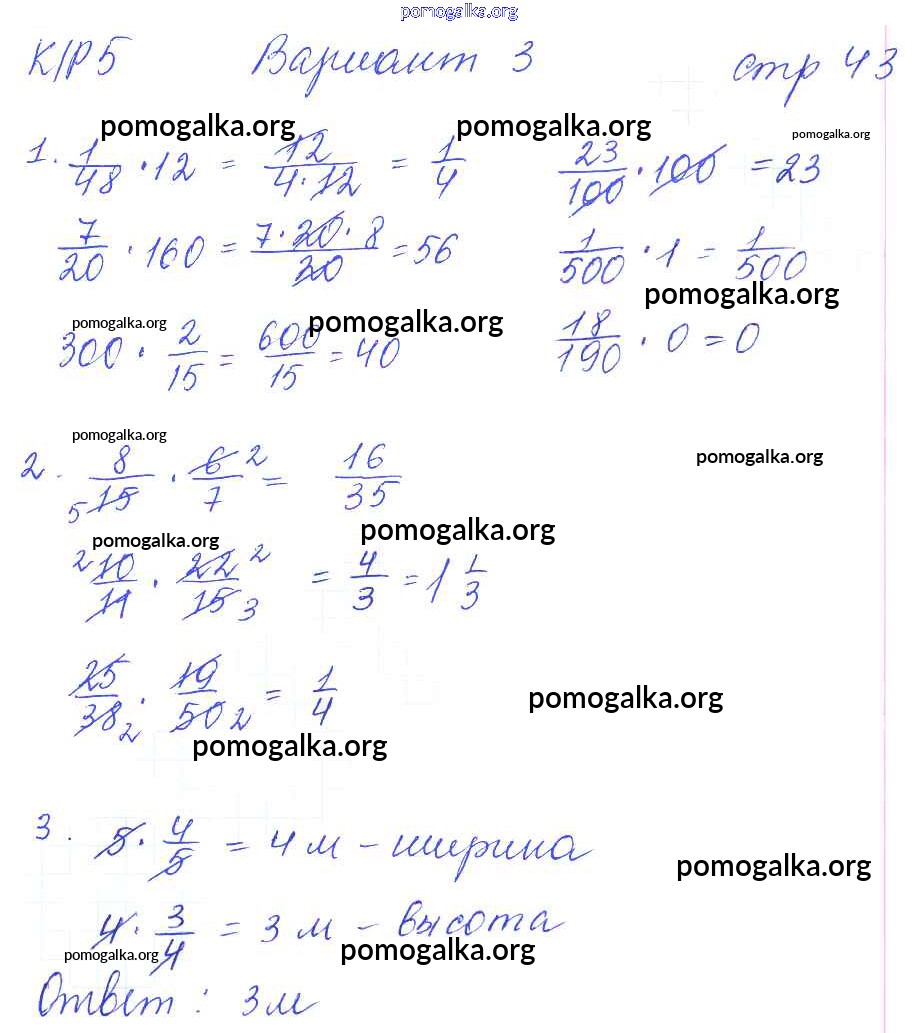 pomogalka.org
К/Р 5 Вариант 3 стр 43
pomogalka.org pomogalka.org pomogalka.org
1. 1/48 · 12 = 12/(4·12) = 1/4 23/100 · 100 = 23
7/20 · 160 = (7·20·8)/20 = 56 1/500 · 1 = 1/500
pomogalka.org
pomogalka.org pomogalka.org
300 · 2/15 = 600/15 = 40 18/190 · 0 = 0
pomogalka.org
2. 8/15 5 · 6/7 2 = 16/35
pomogalka.org
pomogalka.org
pomogalka.org
2 10/11 · 22/15 2 3 = 4/3 = 1 1/3
25/38 2 · 19/50 2 = 1/4
pomogalka.org
pomogalka.org
3. 5 · 4/5 = 4 м – ширина
pomogalka.org
4 · 3/4 = 3 м – высота
pomogalka.org pomogalka.org
Ответ: 3 м